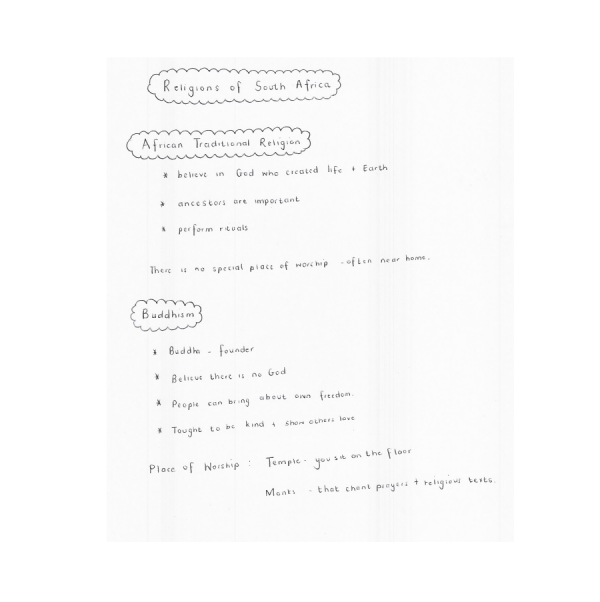 Religions of South Africa
African Traditional Religion
* believe in God who created life + Earth
* ancestors are important
* perform rituals
There is no special place of worship - often near home.
Buddhism
* Buddha - founder
* Believe there is no God
* People can bring about own freedom.
* Tought to be kind + show others love
Place of Worship : Temple - you sit on the floor
Monks - that chant prayers + religious texts.